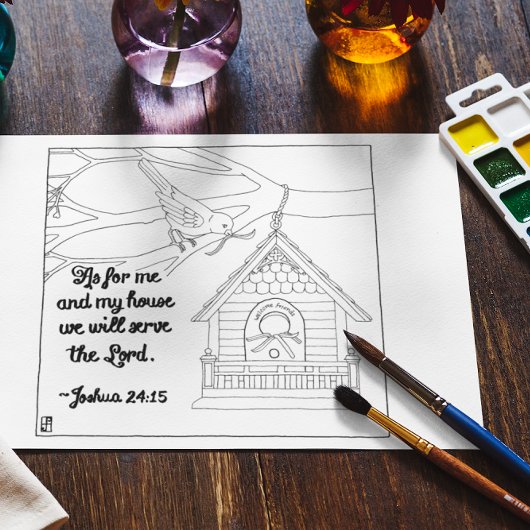 As for me
and my house
we will serve
the Lord.
~Joshua 24:15
Welcome Friends